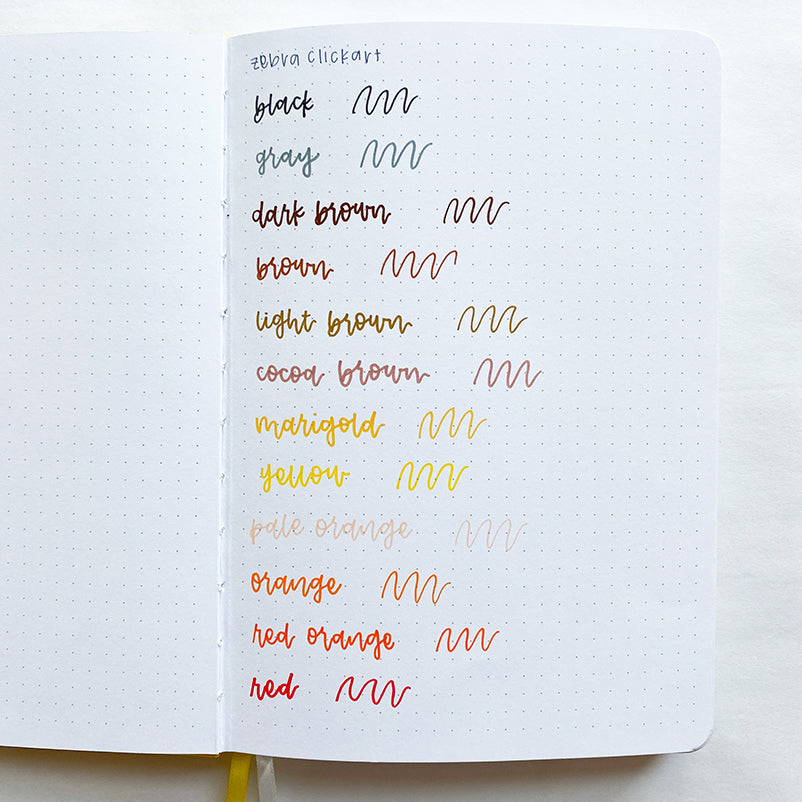 zebra clickart
black
gray
dark brown
brown
light brown
cocoa brown
marigold
yellow
pale orange
orange
red orange
red